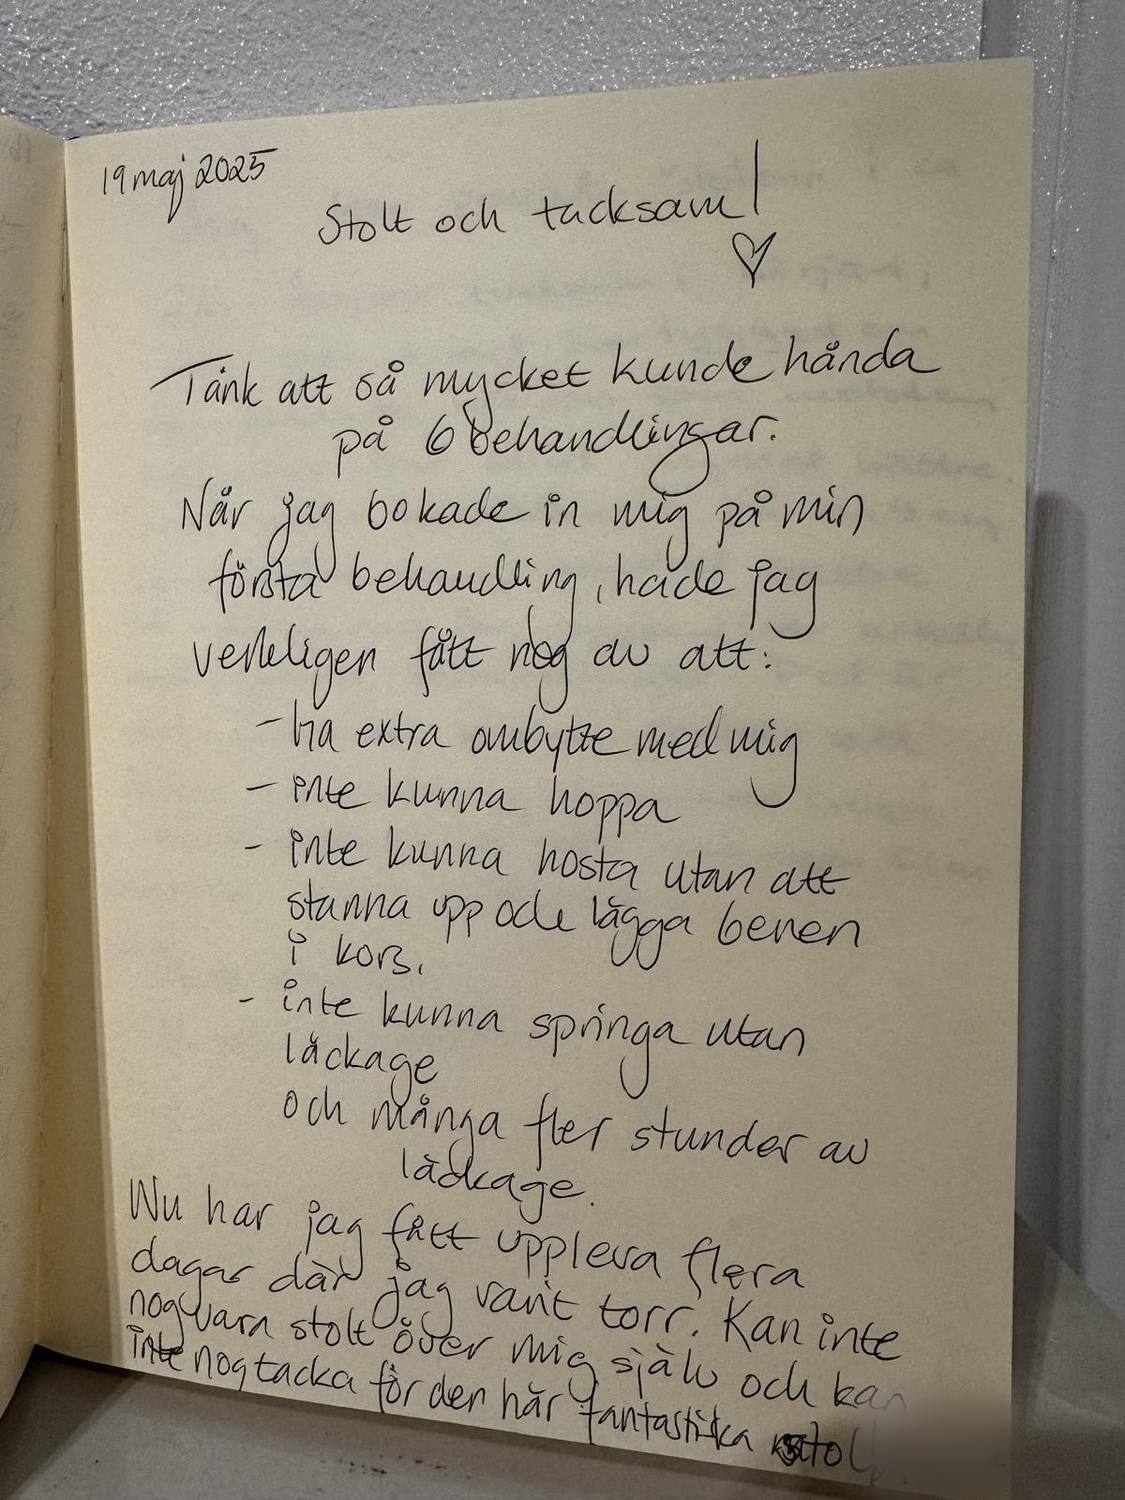 19 maj 2025
Stolt och tacksam!
♡
Tänk att så mycket kunde hända
på 6 behandlingar.
När jag bokade in mig på min
första behandling, hade jag
verkligen fått nog av att:
- ha extra ombytte med mig
- inte kunna hoppa
- inte kunna hosta utan att
stanna upp och lägga benen
i kors.
- inte kunna springa utan
läckage
och många fler stunder av
läckage.
Nu har jag fått uppleva flera
dagar där jag varit torr. Kan inte
nog vara stolt över mig själv och kan
inte nog tacka för den här fantastiska